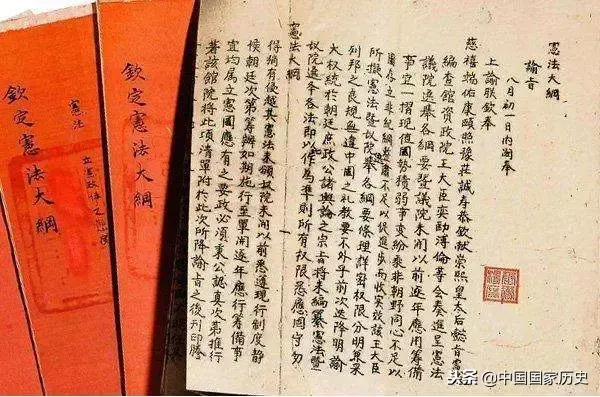 憲法大綱
諭旨
八月初一日內閣奉
上諭朕欽奉
慈禧端佑康頤照豫莊誠寿恭欽獻崇熙皇太后懿旨憲
編查館資政院王大臣奕劻溥倫等會奏進呈憲法
議院選舉各綱要暨議院未開以前逐年應行籌備
事宜一摺現值國勢積弱事變紛乘非朝野同心不足以
圖存立非紀綱整肅不足以促進步而收實效該王大臣
所擬憲法暨議院選舉各綱要條理詳密權限分明兼采
列邦之良規無違中國之禮教要不外乎前次迭降明諭
大權統於朝廷庶政公諸輿論之宗旨將來編纂憲法暨
議院選舉各法即以作為準則所有權限悉應固守勿
得稍有侵越其憲法未頒議院未開以前悉遵現行制度靜
候朝廷次第籌辦如期施行至單開逐年應行籌備事
宜均屬立憲國應有之要政必須秉公認真次第推行
著該館院將此項清單附於此次所降諭旨之後刊印謄
憲法大綱
欽定憲法大綱
憲法
欽定憲法大綱
头条@中国国家历史